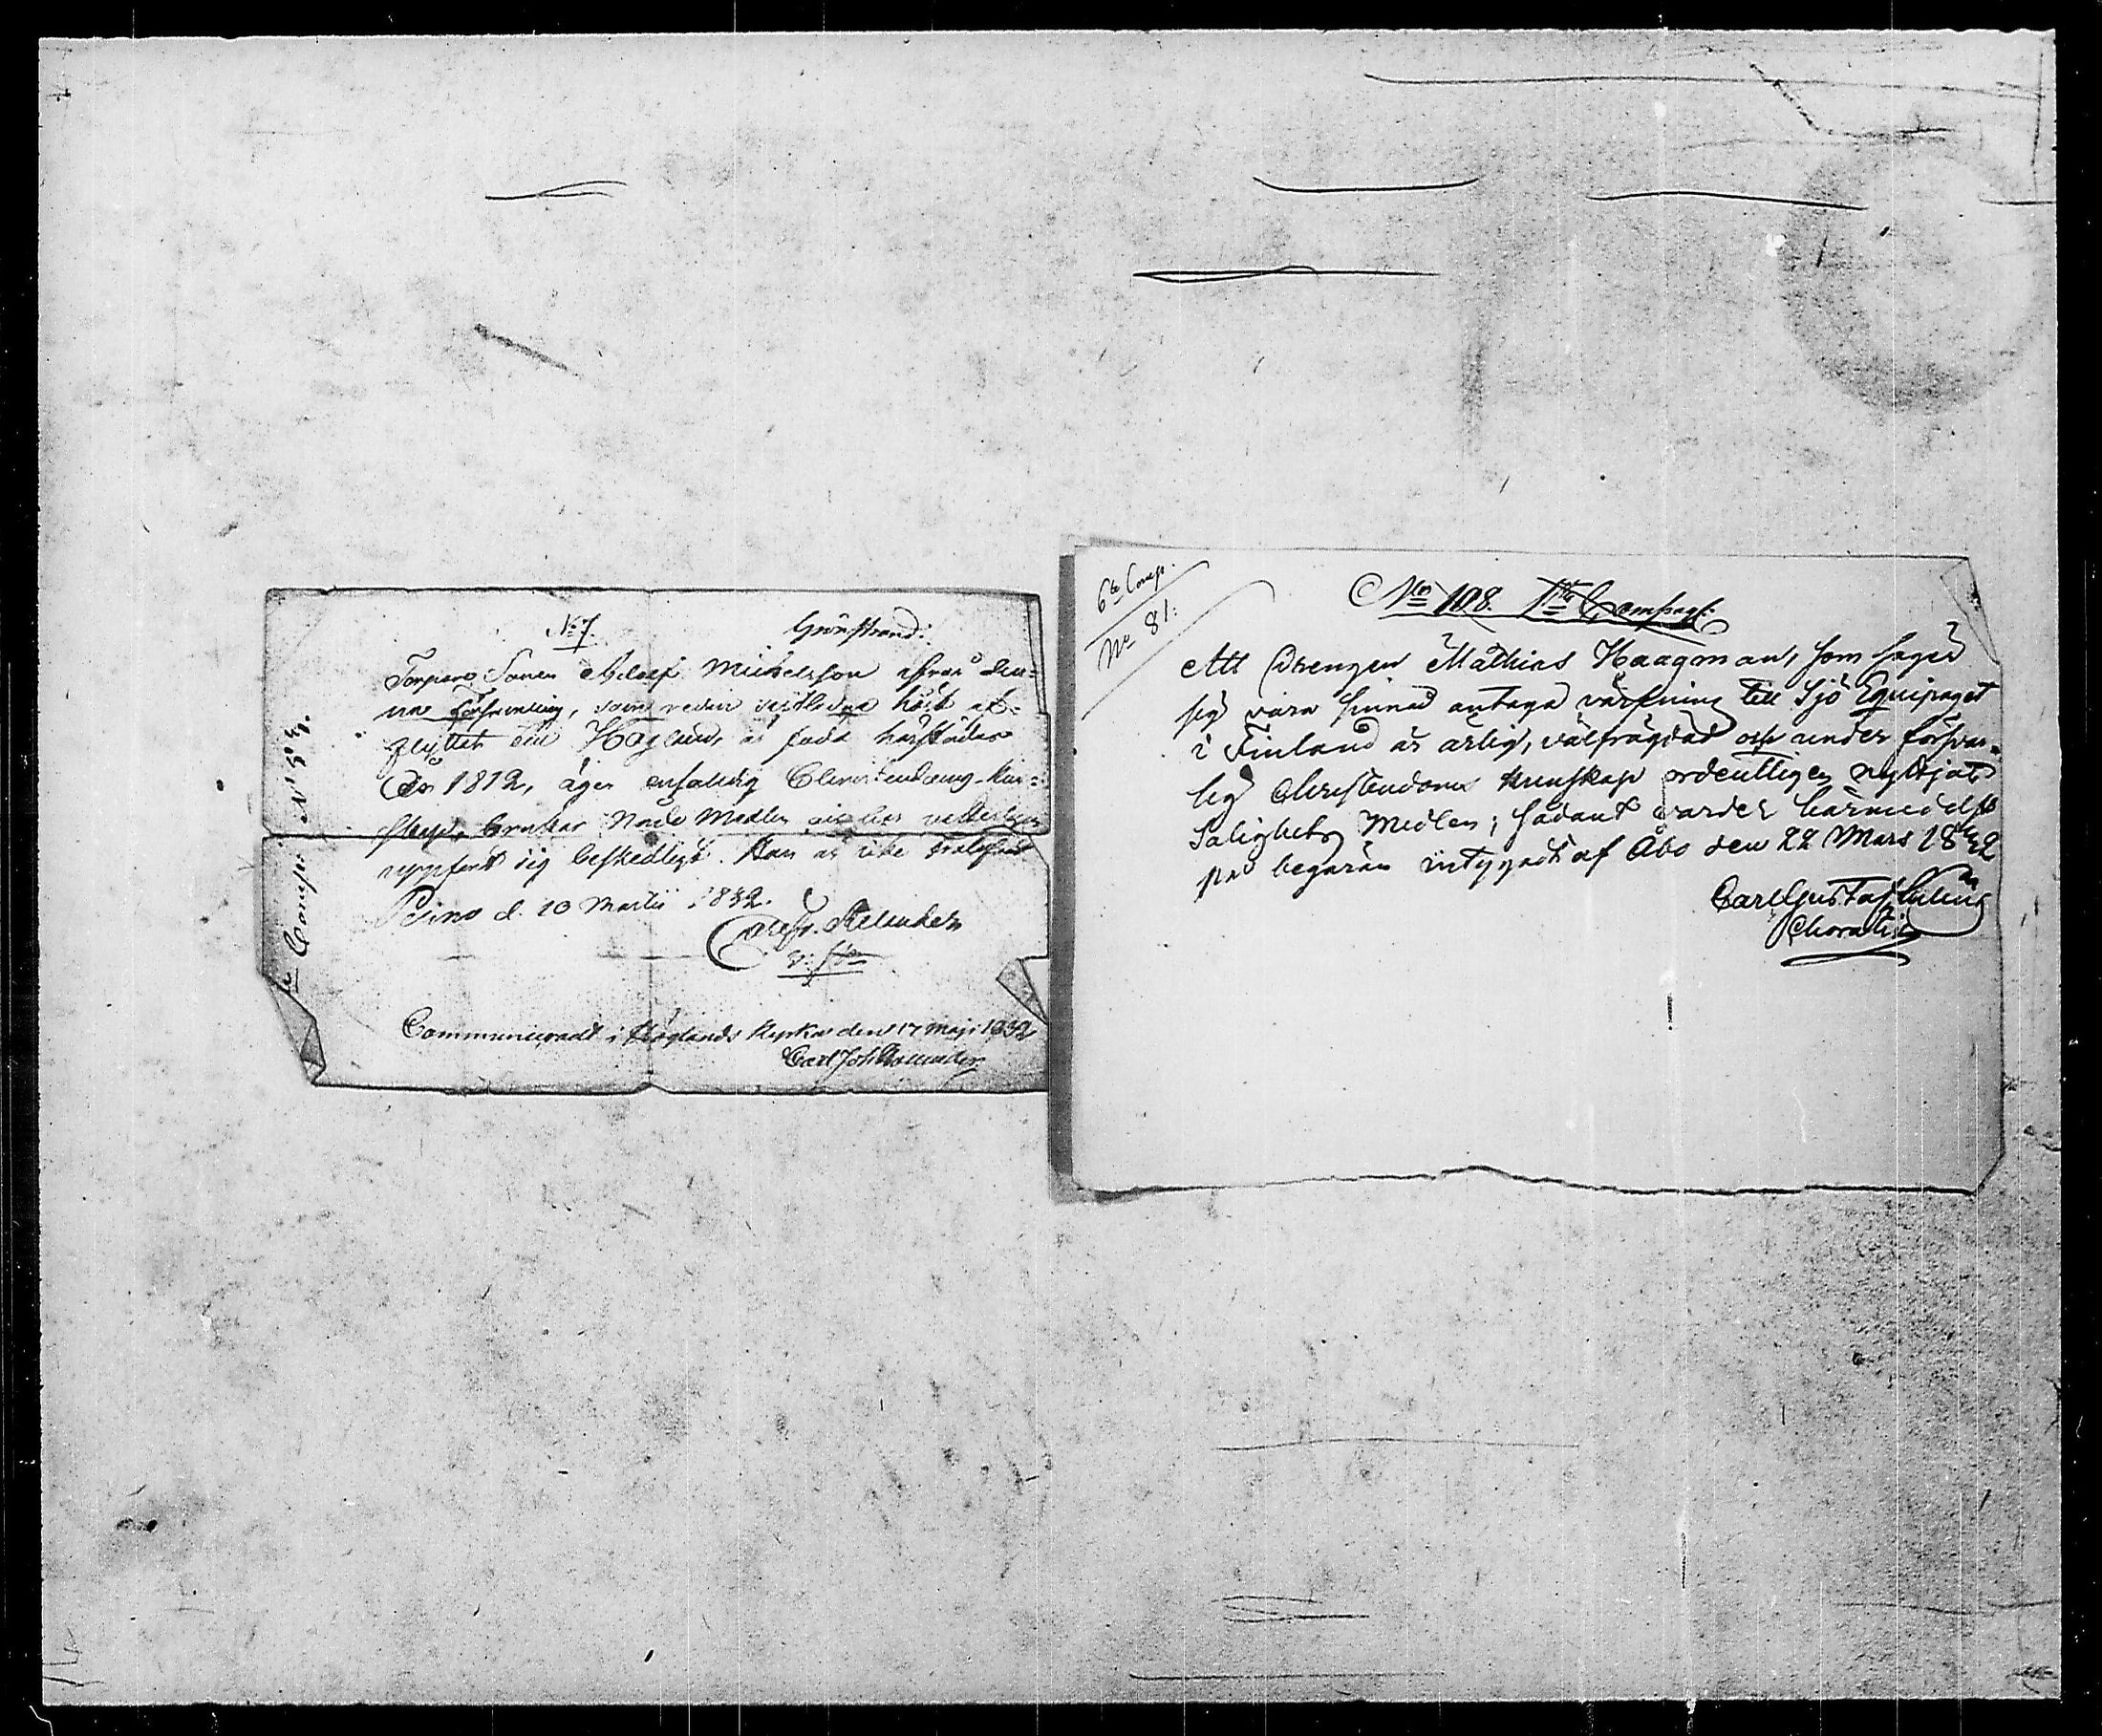 No 7. Grönstrand:
Torpare Sonen Adolf Michelsson ifrån den=
na Församling, som redan sistledne höst af=
flyttat till Hogland, är född härstädes
År 1812, äger enfaldig Christendoms-kun=
skap, brukar Nåde Medlen och har
uppfört sig beskedligt. Han är icke
d. 10 Martii 1832.
Communiceradt i Höglands kyrka den 17 Maji 1832
Carl Joh
Comp: No 134.
6te Comp.
No 81:
No 108. 1sta Compagt:
Att Drengen Mathias Haagman, som säger
sig vara sinnad antaga värfning till Sjö Equipaget
i Finland är ärlig, välfrägdad och under försvar=
lig Christendoms kunskap ordentligen nyttjat
Salighets Medlen; sådant varder härmedelst
på begäran intygadt af Åbo den 22 Mars 1832
Carl Gustaf